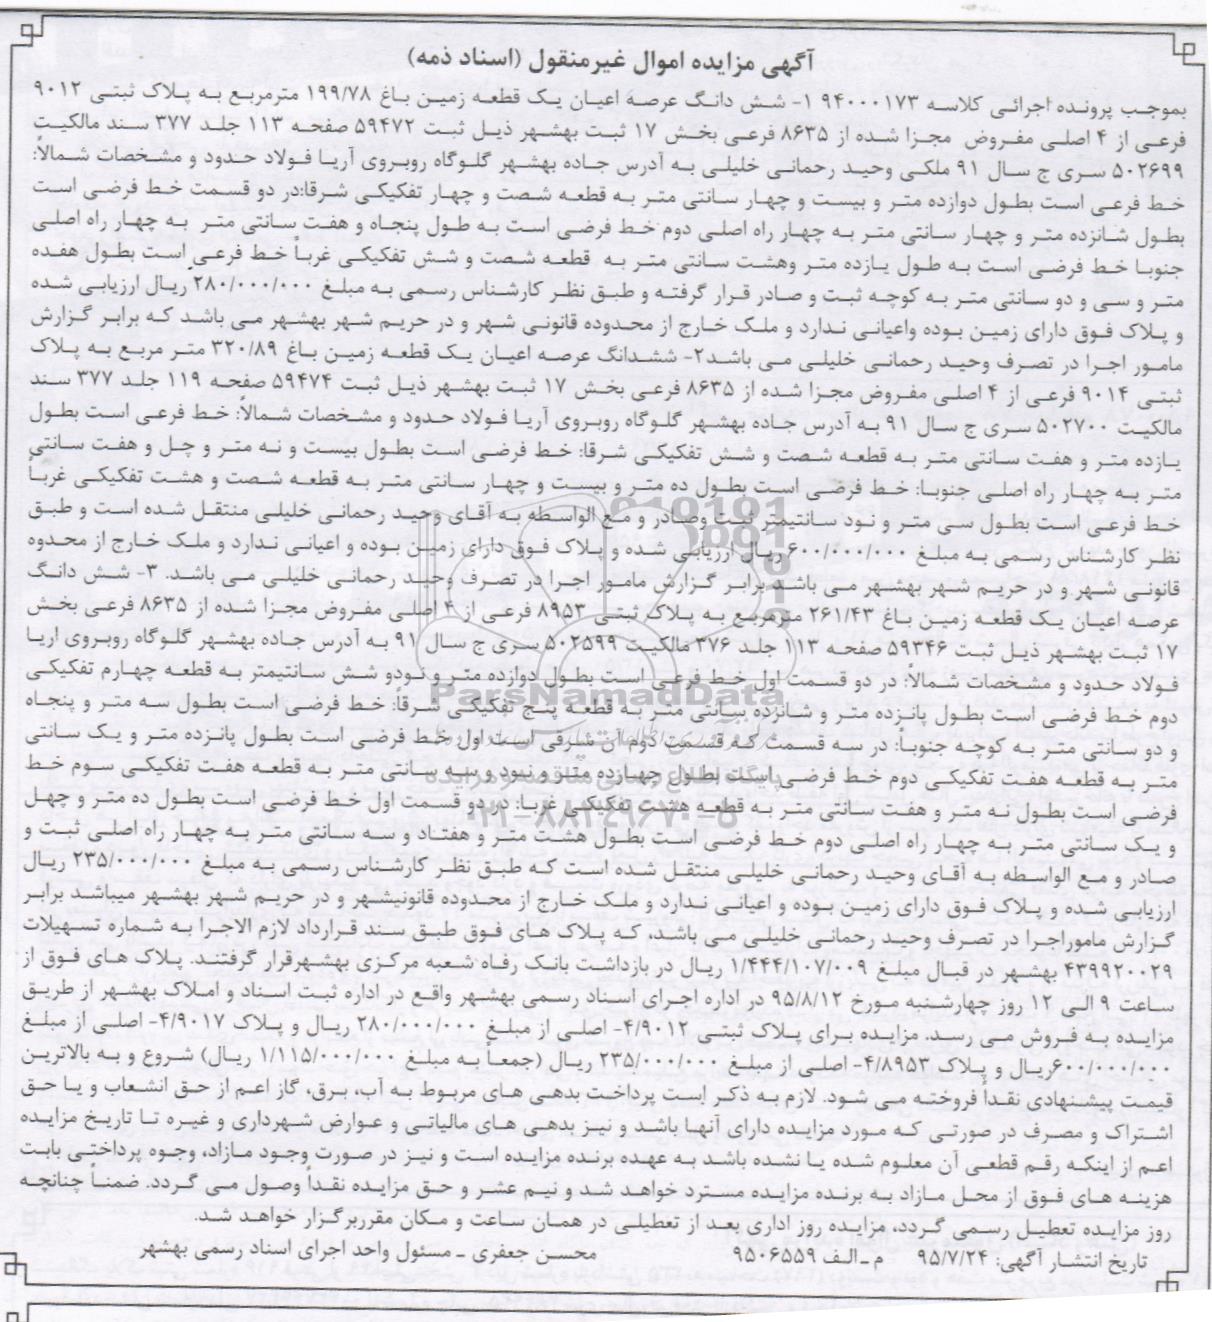 آگهی مزایده اموال غیرمنقول (اسناد ذمه)
بموجب پرونده اجرائی کلاسه ۹۴۰۰۰۱۷۳ ۱- شش دانگ عرصه اعیان یک قطعه زمین باغ ۱۹۹/۷۸ مترمربع به پلاک ثبتی ۹۰۱۲
فرعی از ۴ اصلی مفروض مجزا شده از ۸۶۳۵ فرعی بخش ۱۷ ثبت بهشهر ذیل ثبت ۵۹۴۷۲ صفحه ۱۱۳ جلد ۳۷۷ سند مالکیت
۵۰۲۶۹۹ سری ج سال ۹۱ ملکی وحید رحمانی خلیلی به آدرس جاده بهشهر گلوگاه روبروی آریا فولاد حدود و مشخصات شمالاً:
خط فرعی است بطول دوازده متر و بیست و چهار سانتی متر به قطعه شصت و چهار تفکیکی شرقا:در دو قسمت خط فرضی است
بطول شانزده متر و چهار سانتی متر به چهار راه اصلی دوم خط فرضی است به طول پنجاه و هفت سانتی متر به چهار راه اصلی
جنوبا خط فرضی است به طول یازده متر وهشت سانتی متر به قطعه شصت و شش تفکیکی غرباً خط فرعی است بطول هفده
متر و سی و دو سانتی متر به کوچه ثبت و صادر قرار گرفته و طبق نظر کارشناس رسمی به مبلغ ۲۸۰/۰۰۰/۰۰۰ ریال ارزیابی شده
و پلاک فوق دارای زمین بوده واعیانی ندارد و ملک خارج از محدوده قانونی شهر و در حریم شهر بهشهر می باشد که برابر گزارش
مامور اجرا در تصرف وحید رحمانی خلیلی می باشد۲- ششدانگ عرصه اعیان یک قطعه زمین باغ ۳۲۰/۸۹ متر مربع به پلاک
ثبتی ۹۰۱۴ فرعی از ۴ اصلی مفروض مجزا شده از ۸۶۳۵ فرعی بخش ۱۷ ثبت بهشهر ذیل ثبت ۵۹۴۷۴ صفحه ۱۱۹ جلد ۳۷۷ سند
مالکیت ۵۰۲۷۰۰ سری ج سال ۹۱ به آدرس جاده بهشهر گلوگاه روبروی آریا فولاد حدود و مشخصات شمالاً: خط فرعی است بطول
یازده متر و هفت سانتی متر به قطعه شصت و شش تفکیکی شرقا: خط فرضی است بطول بیست و نه متر و چل و هفت سانتی
متر به چهار راه اصلی جنوبا: خط فرضی است بطول ده متر و بیست و چهار سانتی متر به قطعه شصت و هشت تفکیکی غرباً
خط فرعی است بطول سی متر و نود سانتیمتر ثبت وصادر و مع الواسطه به آقای وحید رحمانی خلیلی منتقل شده است و طبق
نظر کارشناس رسمی به مبلغ ۶۰۰/۰۰۰/۰۰۰ ریال ارزیابی شده و پلاک فوق دارای زمین بوده و اعیانی ندارد و ملک خارج از محدوه
قانونی شهر و در حریم شهر بهشهر می باشد برابر گزارش مامور اجرا در تصرف وحید رحمانی خلیلی می باشد. ۳- شش دانگ
عرصه اعیان یک قطعه زمین باغ ۲۶۱/۴۳ مترمربع به پلاک ثبتی ۸۹۵۳ فرعی از ۴ اصلی مفروض مجزا شده از ۸۶۳۵ فرعی بخش
۱۷ ثبت بهشهر ذیل ثبت ۵۹۳۴۶ صفحه ۱۱۳ جلد ۳۷۶ مالکیت ۵۰۲۵۹۹ سری ج سال ۹۱ به آدرس جاده بهشهر گلوگاه روبروی اریا
فولاد حدود و مشخصات شمالاً: در دو قسمت اول خط فرعی است بطول دوازده متر و نودو شش سانتیمتر به قطعه چهارم تفکیکی
دوم خط فرضی است بطول پانزده متر و شانزده سانتی متر به قطعه پنج تفکیکی شرقاً: خط فرضی است بطول سه متر و پنجاه
و دو سانتی متر به کوچه جنوباً: در سه قسمت که قسمت دوم آن شرقی است اول خط فرضی است بطول پانزده متر و یک سانتی
متر به قطعه هفت تفکیکی دوم خط فرضی است بطول چهارده متر و نبود و سه سانتی متر به قطعه هفت تفکیکی سوم خط
فرضی است بطول نه متر و هفت سانتی متر به قطعه هشت تفکیکی غربا: در دو قسمت اول خط فرضی است بطول ده متر و چهل
و یک سانتی متر به چهار راه اصلی دوم خط فرضی است بطول هشت متر و هفتاد و سه سانتی متر به چهار راه اصلی ثبت و
صادر و مع الواسطه به آقای وحید رحمانی خلیلی منتقل شده است که طبق نظر کارشناس رسمی به مبلغ ۲۳۵/۰۰۰/۰۰۰ ریال
ارزیابی شده و پلاک فوق دارای زمین بوده و اعیانی ندارد و ملک خارج از محدوده قانونیشهر و در حریم شهر بهشهر میباشد برابر
گزارش ماموراجرا در تصرف وحید رحمانی خلیلی می باشد، که پلاک های فوق طبق سند قرارداد لازم الاجرا به شماره تسهیلات
۴۳۹۹۲۰۰۲۹ بهشهر در قبال مبلغ ۱/۴۴۴/۱۰۷/۰۰۹ ریال در بازداشت بانک رفاه شعبه مرکزی بهشهرقرار گرفتند. پلاک های فوق از
ساعت ۹ الی ۱۲ روز چهارشنبه مورخ ۹۵/۸/۱۲ در اداره اجرای اسناد رسمی بهشهر واقع در اداره ثبت اسناد و املاک بهشهر از طریق
مزایده به فروش می رسد. مزایده برای پلاک ثبتی ۴/۹۰۱۲- اصلی از مبلغ ۲۸۰/۰۰۰/۰۰۰ ریال و پلاک ۴/۹۰۱۷- اصلی از مبلغ
۶۰۰/۰۰۰/۰۰۰ریال و پلاک ۴/۸۹۵۳- اصلی از مبلغ ۲۳۵/۰۰۰/۰۰۰ ریال (جمعاً به مبلغ ۱/۱۱۵/۰۰۰/۰۰۰ ریال) شروع و به بالاترین
قیمت پیشنهادی نقداً فروخته می شود. لازم به ذکر است پرداخت بدهی های مربوط به آب، برق، گاز اعم از حق انشعاب و یا حق
اشتراک و مصرف در صورتی که مورد مزایده دارای آنها باشد و نیز بدهی های مالیاتی و عوارض شهرداری و غیره تا تاریخ مزایده
اعم از اینکه رقم قطعی آن معلوم شده یا نشده باشد به عهده برنده مزایده است و نیز در صورت وجود مازاد، وجوه پرداختی بابت
هزینه های فوق از محل مازاد به برنده مزایده مسترد خواهد شد و نیم عشر و حق مزایده نقداً وصول می گردد. ضمناً چنانچه
روز مزایده تعطیل رسمی گردد، مزایده روز اداری بعد از تعطیلی در همان ساعت و مکان مقرربرگزار خواهد شد.
تاریخ انتشار آگهی: ۹۵/۷/۲۴ م-الف ۹۵۰۶۵۵۹ محسن جعفری - مسئول واحد اجرای اسناد رسمی بهشهر
ParsNamadData
۰۲۱-۸۸۳۴۹۶۷۰-۵